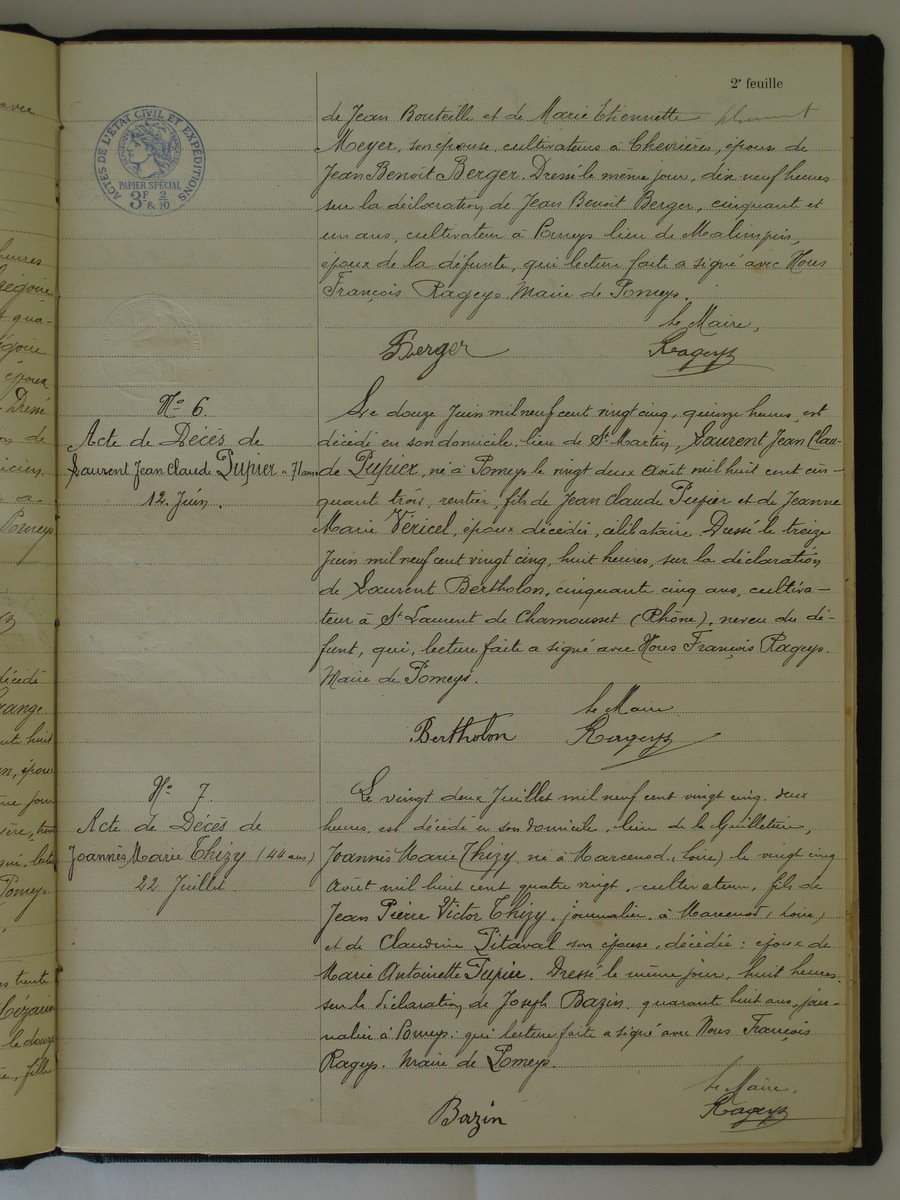 2e feuille
ACTES DE L'ÉTAT CIVIL ET EXPÉDITIONS
PAPIER SPÉCIAL
3F 2/10
&
de Jean Bouteille et de Marie Etiennette
Meyer, son épouse, cultivateurs à Chevrières, épouse de
Jean Benoît Berger. Dressé le même jour, dix neuf heures
sur la déclaration de Jean Benoit Berger, cinquante et
un ans, cultivateur à Pomeys lieu de Malimpin,
époux de la défunte, qui lecture faite a signé avec Nous
François Rageys Maire de Pomeys.
Le Maire,
Berger Rageys
No 6.
Acte de Décès de
Laurent Jean Claude Pupier 71 ans
12 Juin.
Le douze Juin mil neuf cent vingt cinq, quinze heures, est
décédé en son domicile, lieu de St Martin, Laurent Jean Clau-
de Pupier, né à Pomeys le vingt deux Août mil huit cent cin-
quante trois, rentier, fils de Jean Claude Pupier et de Jeanne
Marie Véricel, époux décédés, célibataire. Dressé le treize
Juin mil neuf cent vingt cinq, huit heures, sur la déclaration
de Laurent Bertholon, cinquante cinq ans, cultiva-
teur à St Laurent de Chamousset (Rhône), neveu du dé-
funt, qui, lecture faite a signé avec Nous François Rageys.
Maire de Pomeys.
Le Maire
Bertholon Rageys
No 7.
Acte de Décès de
Joannès Marie Thizy (44 ans)
22 Juillet.
Le vingt deux Juillet mil neuf cent vingt cinq, deux
heures, est décédé en son domicile, lieu de la Guilletière,
Joannès Marie Thizy, né à Marcenod (Loire) le vingt cinq
Août mil huit cent quatre vingt, cultivateur, fils de
Jean Pierre Victor Thizy, journalier, à Marcenod (Loire)
et de Claudine Pitaval son épouse, décédée; époux de
Marie Antoinette Pupier. Dressé le même jour, huit heures
sur la déclaration de Joseph Bazin, quarante huit ans, jour-
nalier à Pomeys: qui lecture faite a signé avec Nous François
Rageys. Maire de Pomeys.
Le Maire,
Bazin Rageys